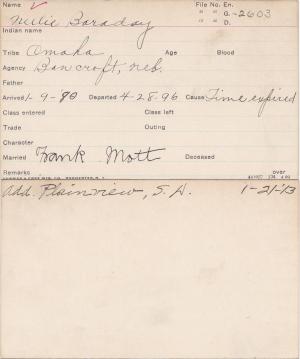 Name ✓ File No. En.
" " G. -2603
Nellie Faraday " " D.
Indian name
Tribe Omaha Age Blood
Agency Bancroft, Neb.
Father
Arrived 1-9-90 Departed 4-28-96 Cause Time expired
Class entered Class left
Trade Outing
Character
Married Frank Mott Deceased
Remarks over
Add. Plainview, S. D. 1-21-13